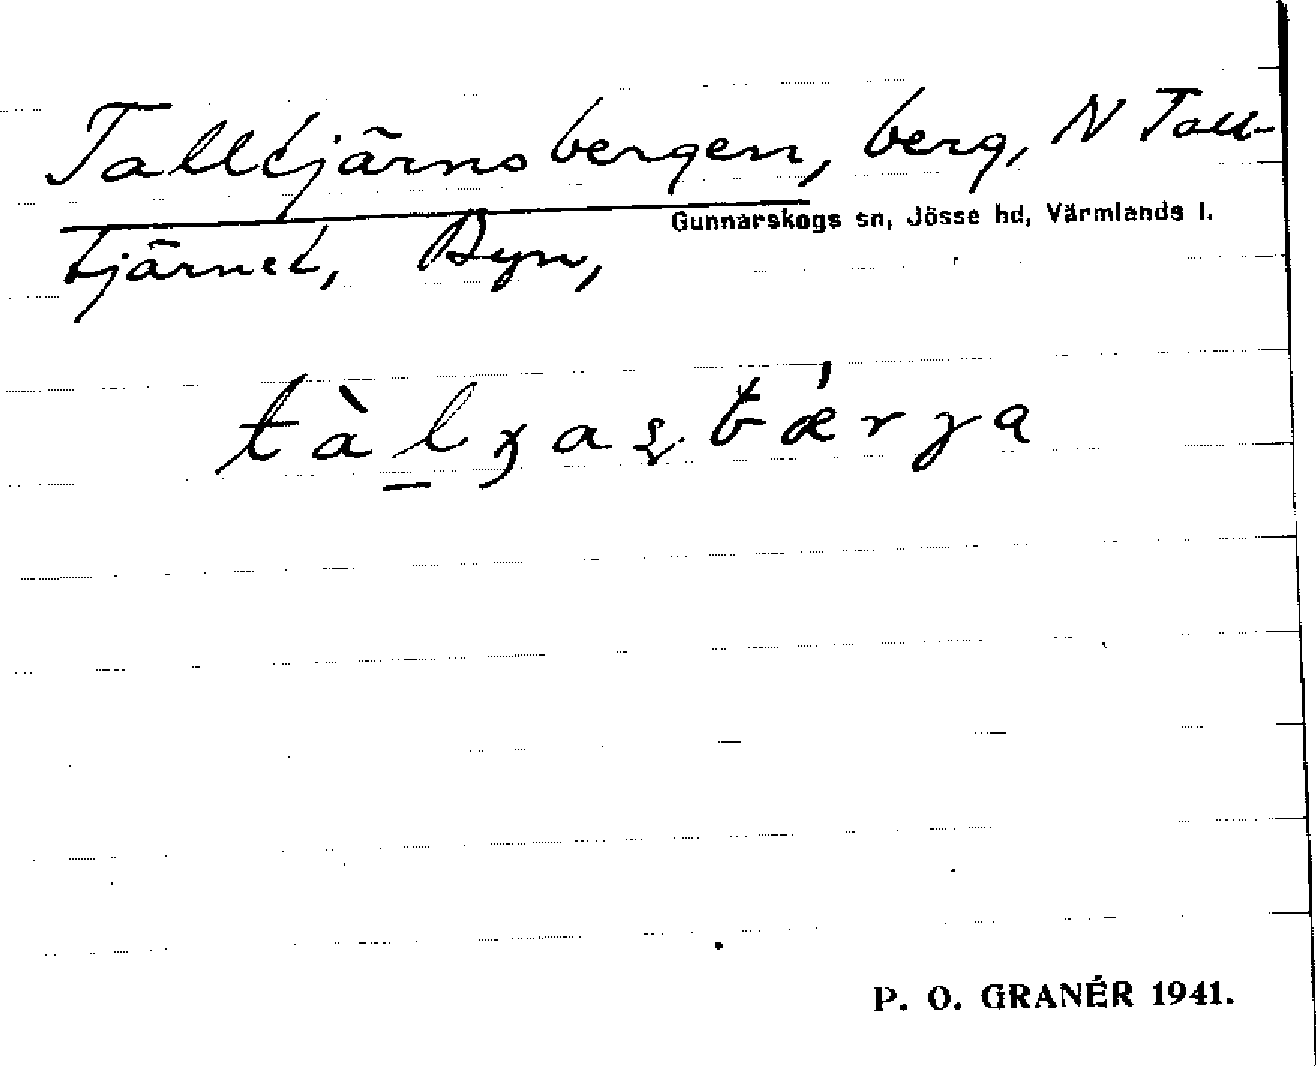 Talltjärnsbergen, berg, N Tall-
Gunnarskogs sn, Jösse hd, Värmlands l.
tjärnet, Byn,
P. O. GRANÉR 1941.